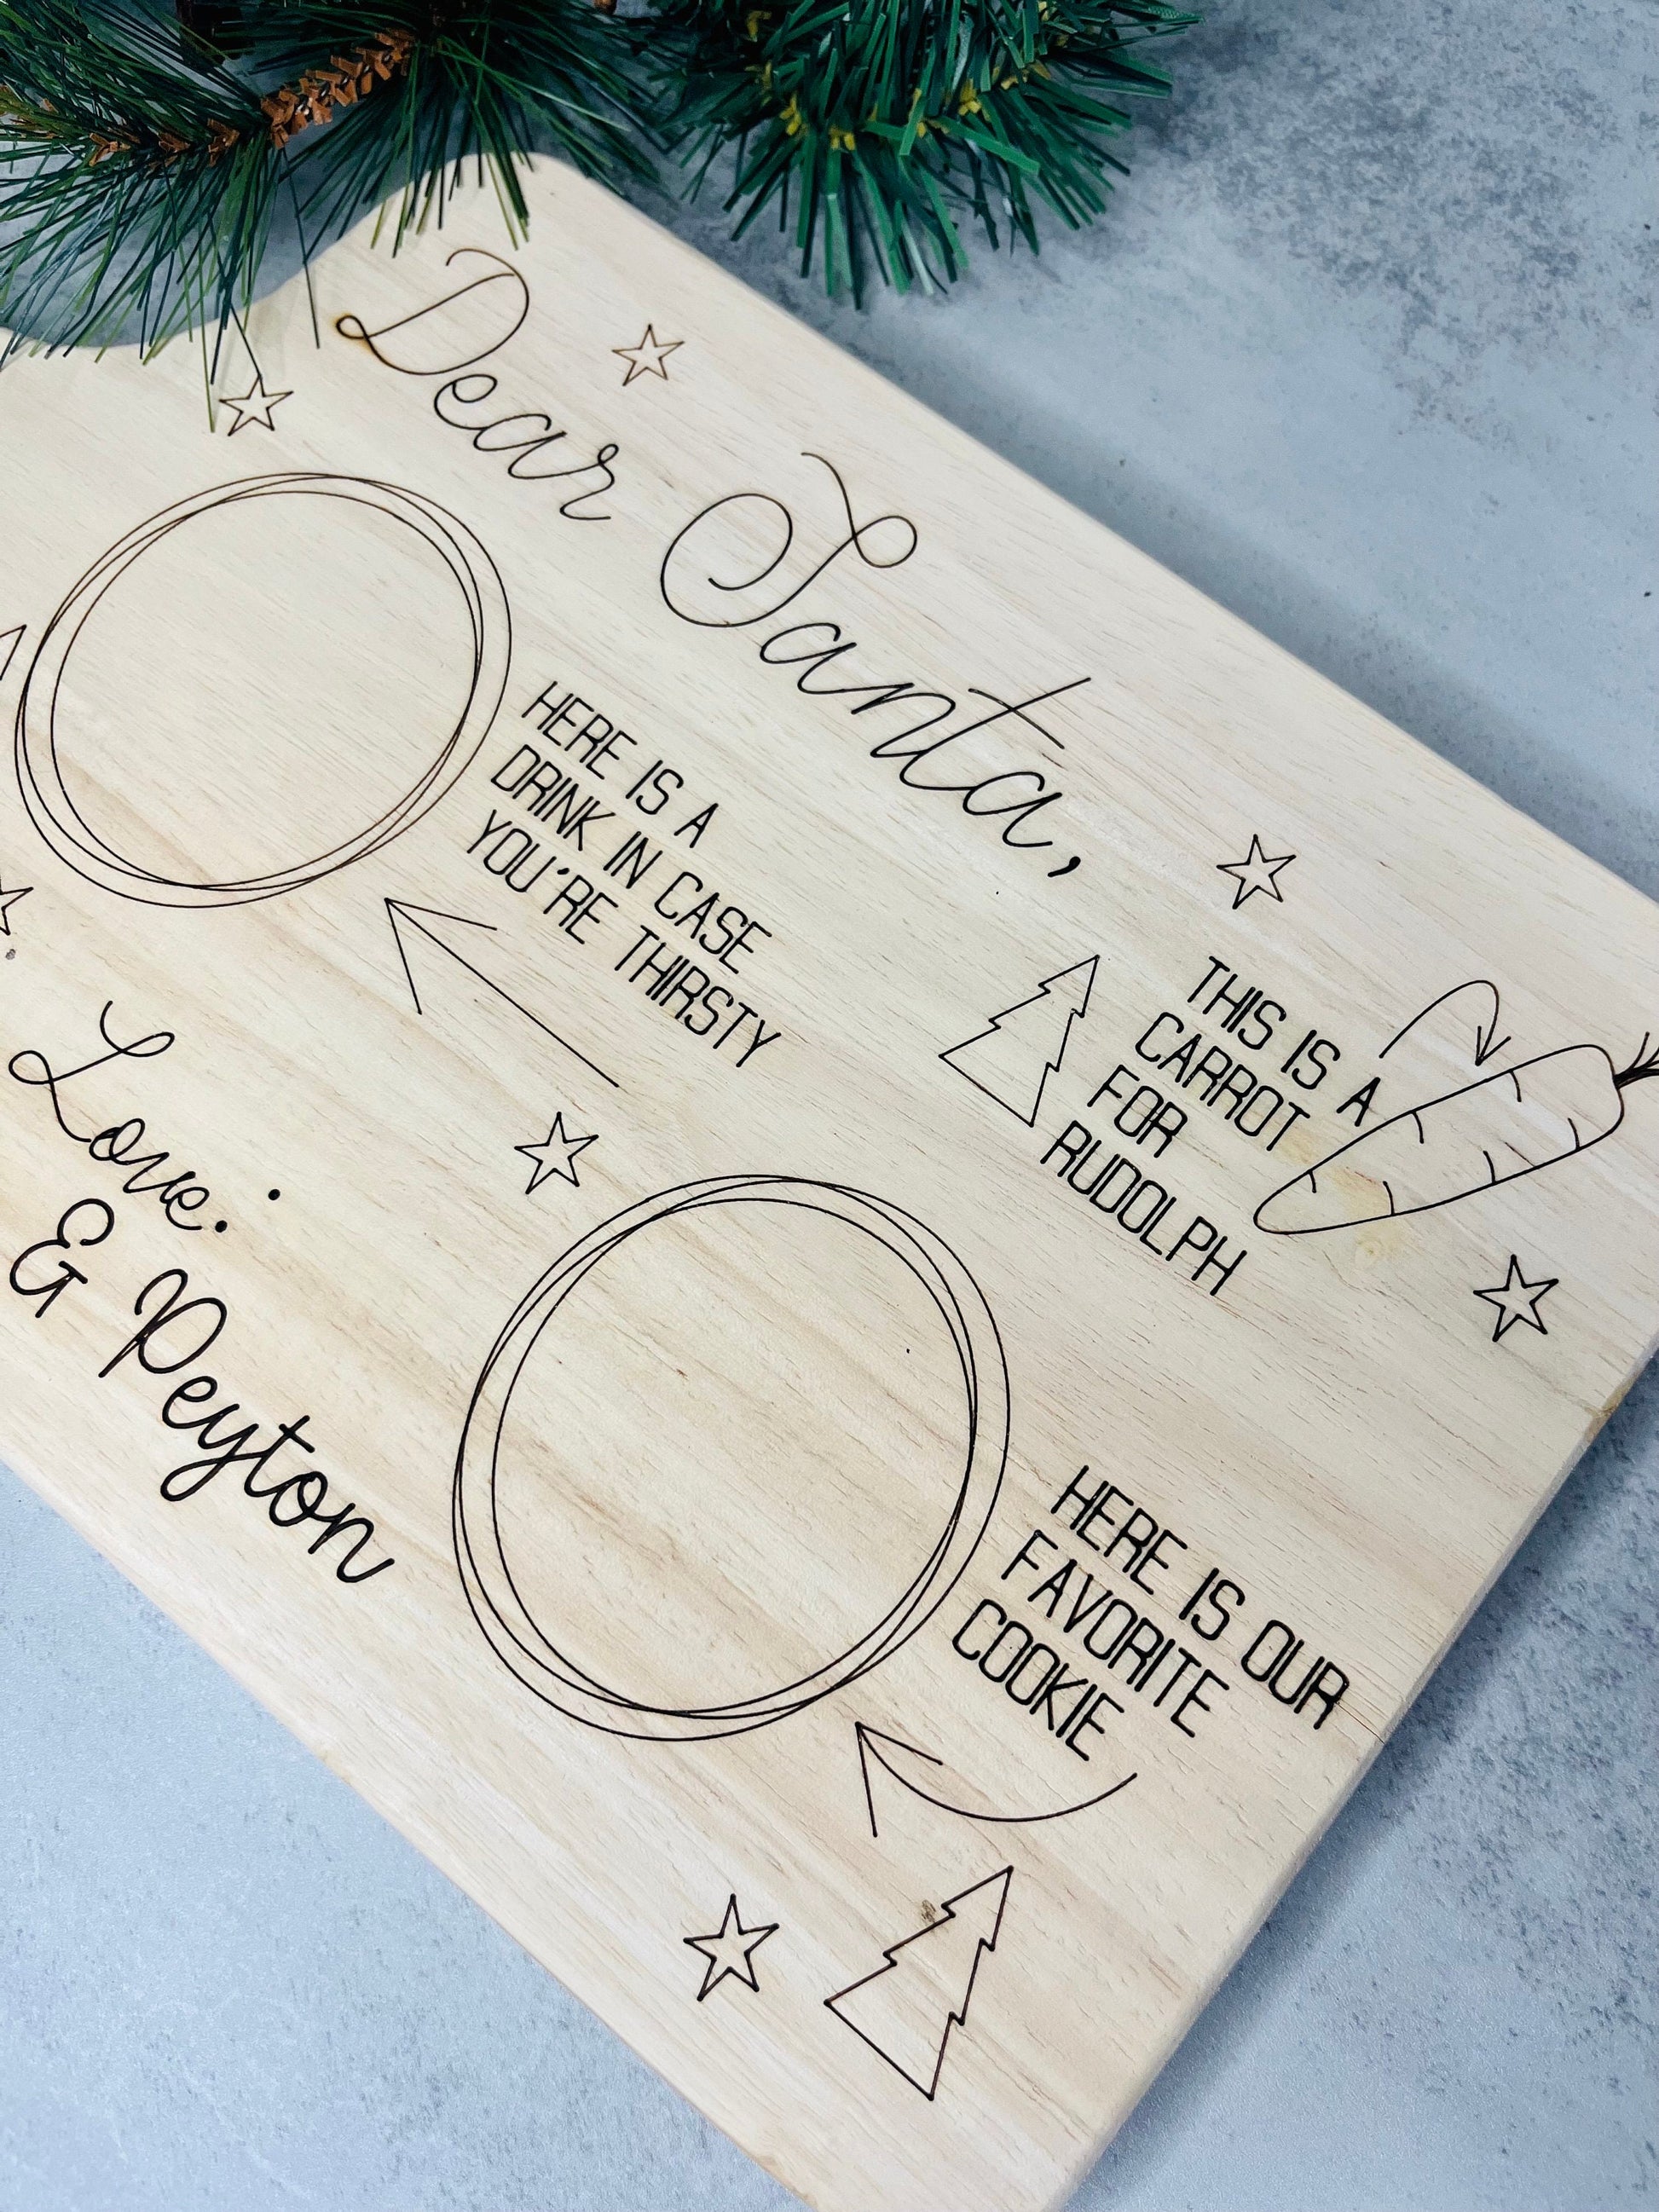 Dear Santa,
HERE IS A
DRINK IN CASE
YOU'RE THIRSTY
THIS IS A
CARROT
FOR
RUDOLPH
HERE IS OUR
FAVORITE
COOKIE
Love:
& Peyton